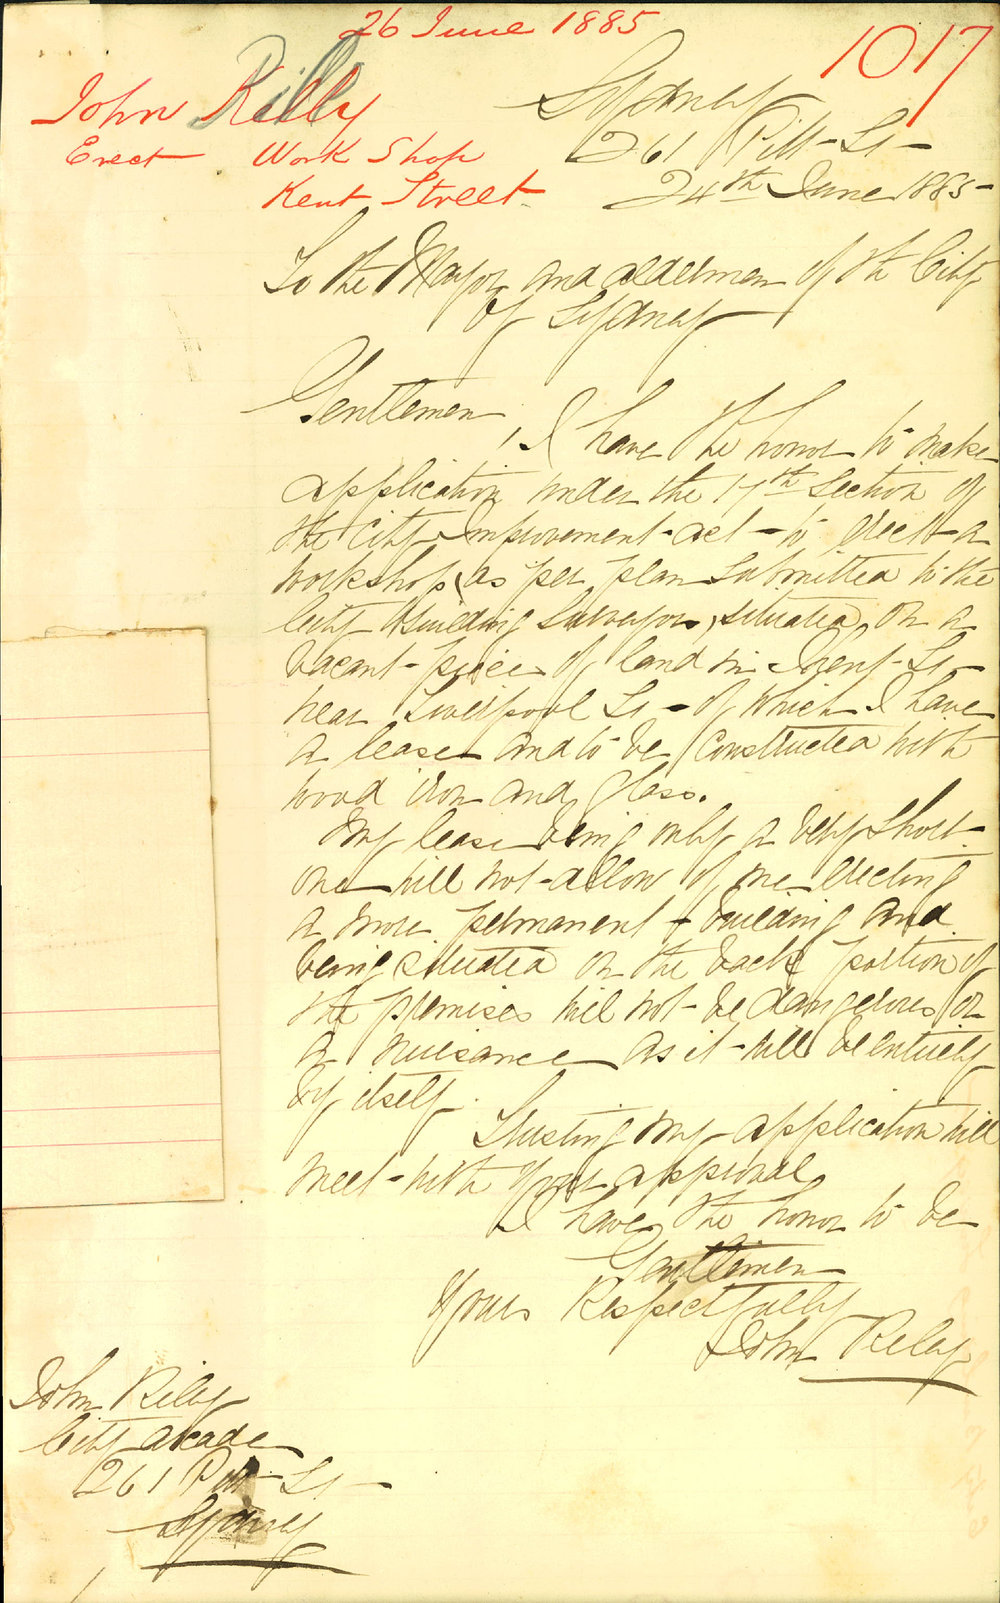 26 June 1885
1017
John Rilly
Erect Work Shop
Kent Street
Sydney
261 Pitt St
24th June 1885
To the Mayor and aldermen of the City
of Sydney
Gentlemen,
I have the honor to make
application under the 17th Section of
the City Improvement act to erect a
workshop (as per plan submitted to the
City Building Surveyor, situated on a
vacant piece of land in Kent St
near Liverpool St of which I have
a lease and to be constructed with
wood iron and glass.
My lease being only a very short
one will not allow of me erecting
a more permanent building and
being situated on the back portion of
the premises will not be dangerous or
a nuisance as it will be entirely
by itself.
Trusting my application will
meet with your approval
I have the honor to be
Gentlemen
Yours Respectfully
John Riley
John Riley
City arcade
261 Pitt St
Sydney